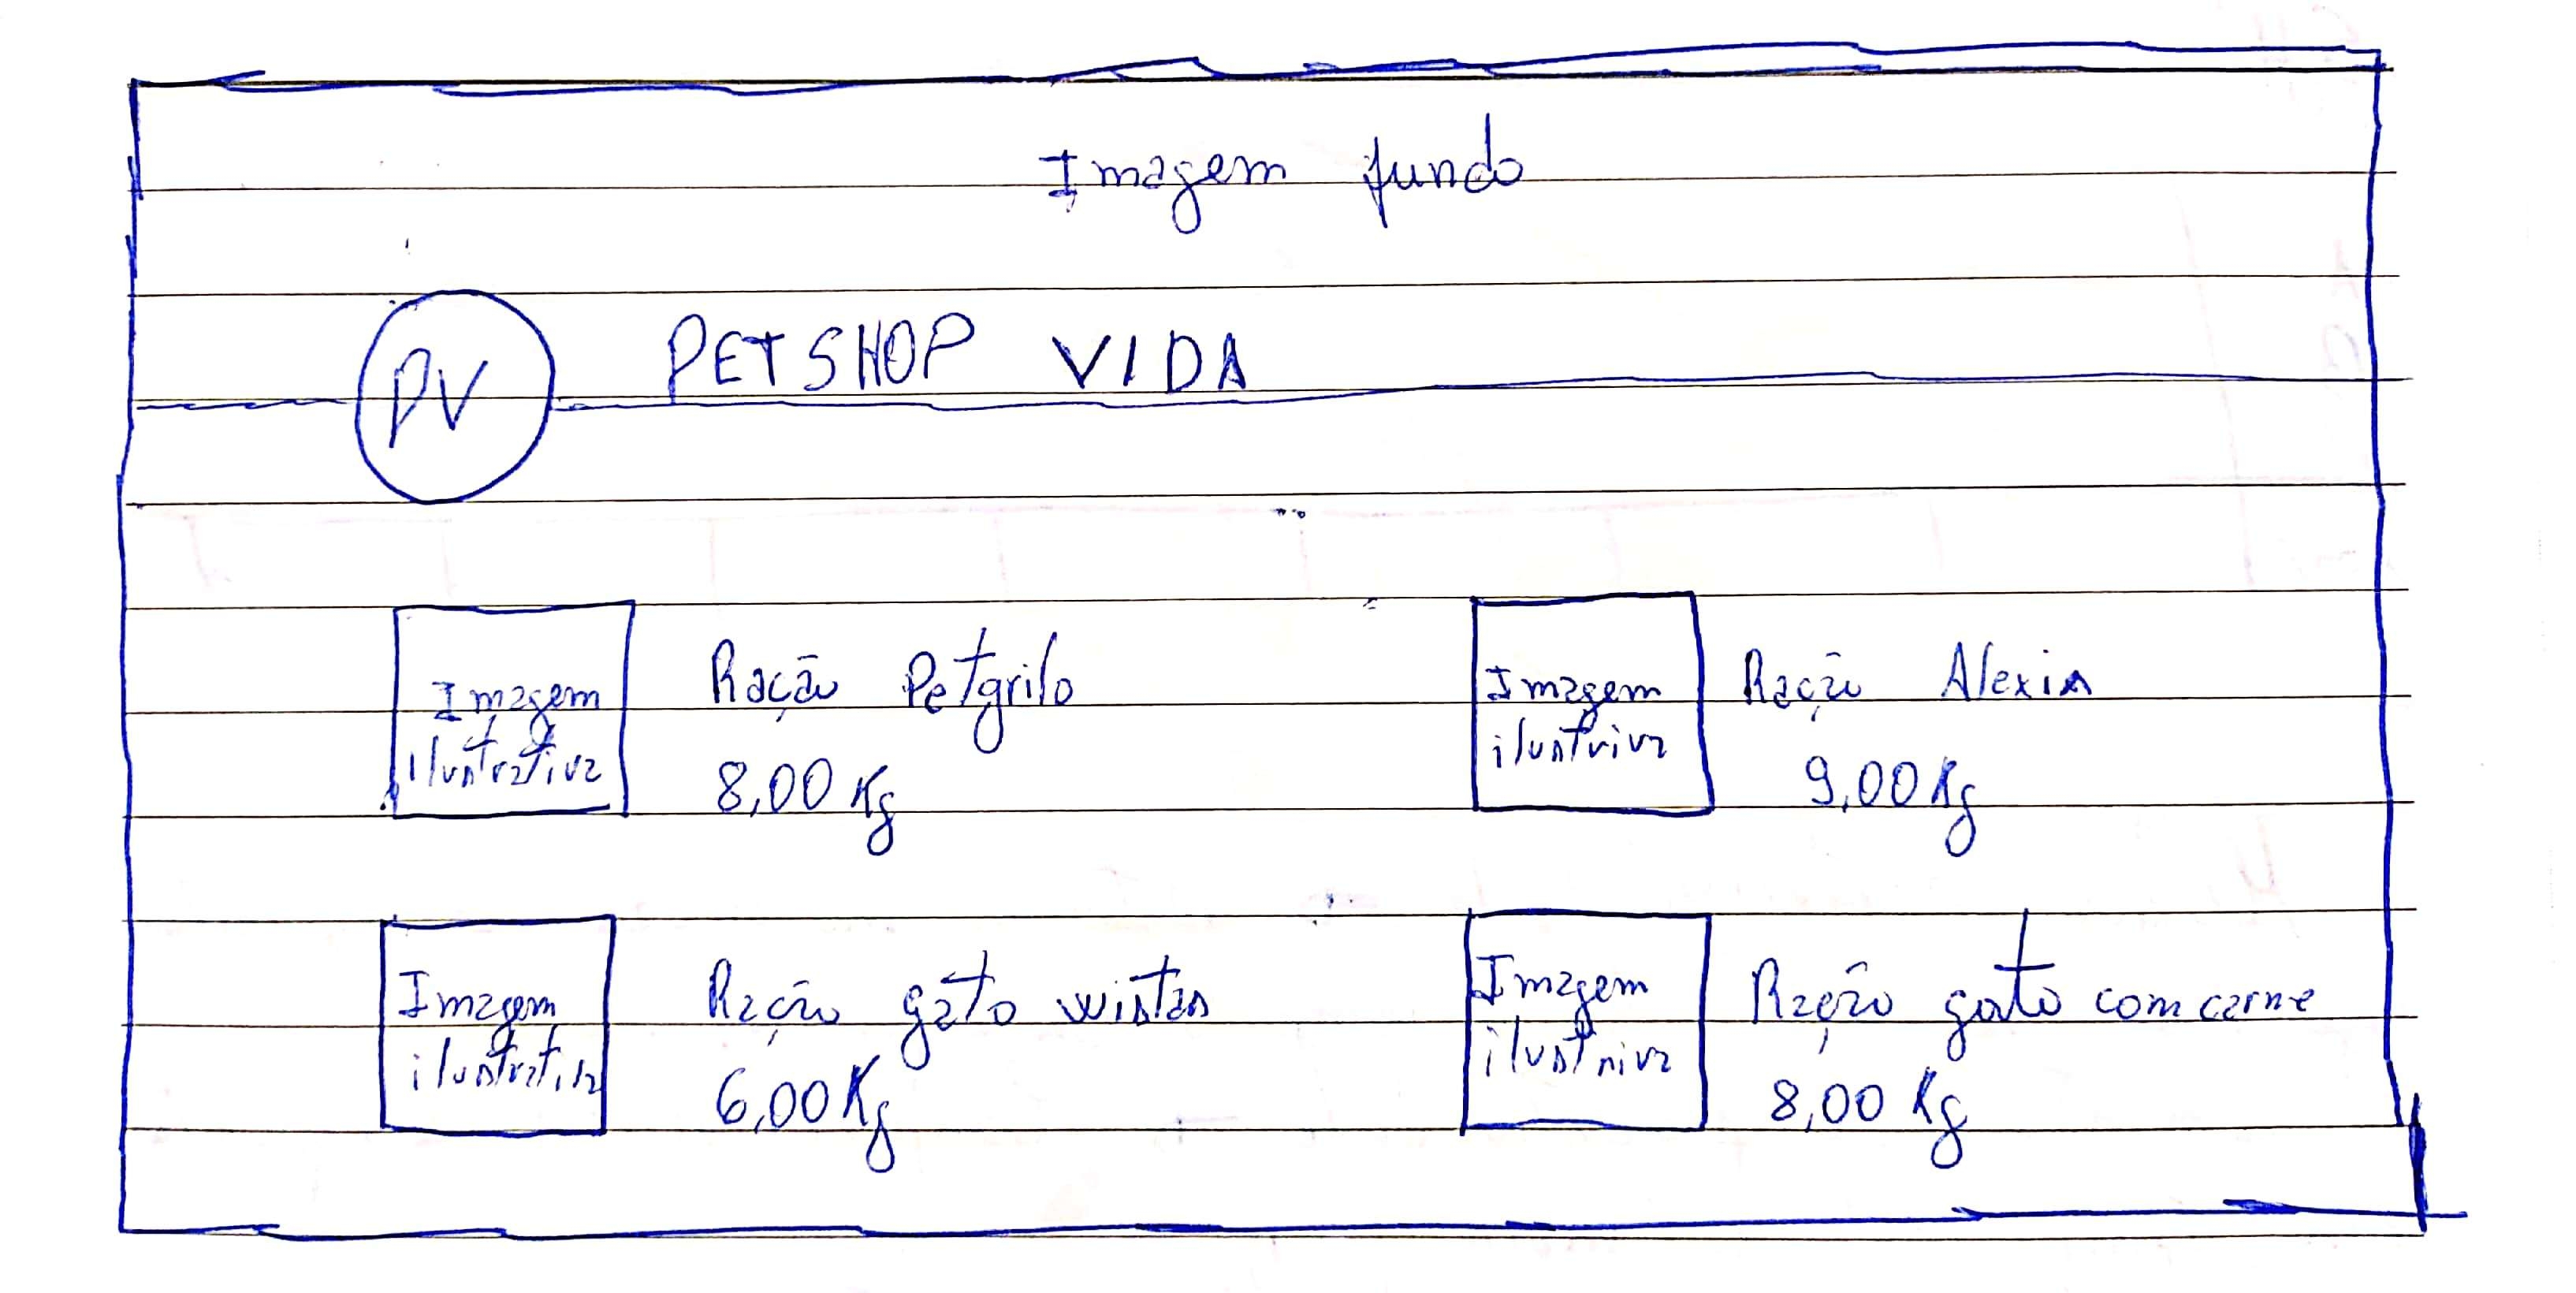 Imagem fundo
PV
PETSHOP VIDA
Imagem
ilustrativa
Ração Petgrilo
8,00 Kg
Imagem
ilustriva
Ração Alexia
9,00 Kg
Imagem
ilustrativa
Ração gato
6,00 Kg
Imagem
ilustriva
Ração gato com carne
8,00 Kg